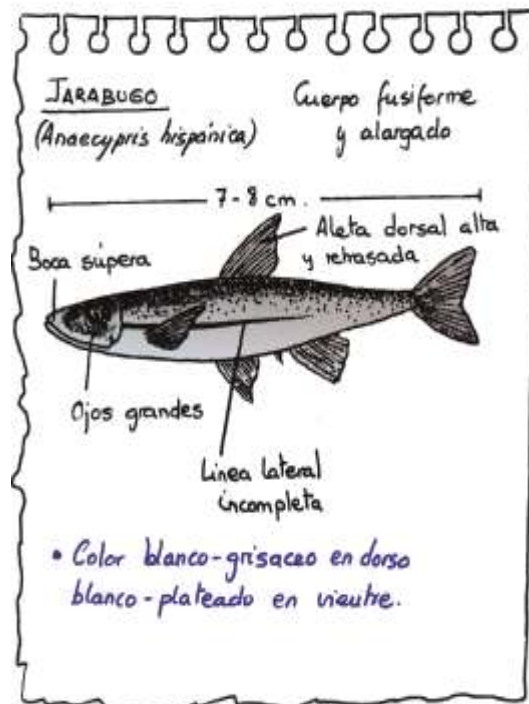 JARABUGO
(Anaecypris hispánica)
Cuerpo fusiforme
y alargado
7-8 cm.
Aleta dorsal alta
y retrasada
Boca súpera
Ojos grandes
Linea lateral
incompleta
• Color blanco-grisaceo en dorso
blanco-plateado en vientre.